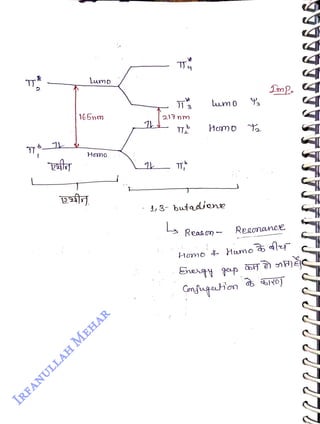 π*4
π*2 Lumo
Imp.
π*3 Lumo Ψ3
165nm
217 nm
1L π2b Homo Ψ2
π1b 1L
Homo
1L π1b
एथीन
एथीन
1,3- butadiene
↳ Reason - Resonance
Homo & Humo के बीच
Energy gap कम हो जाता है
Conjugation के कारण
IRFANULLAH MEHAR